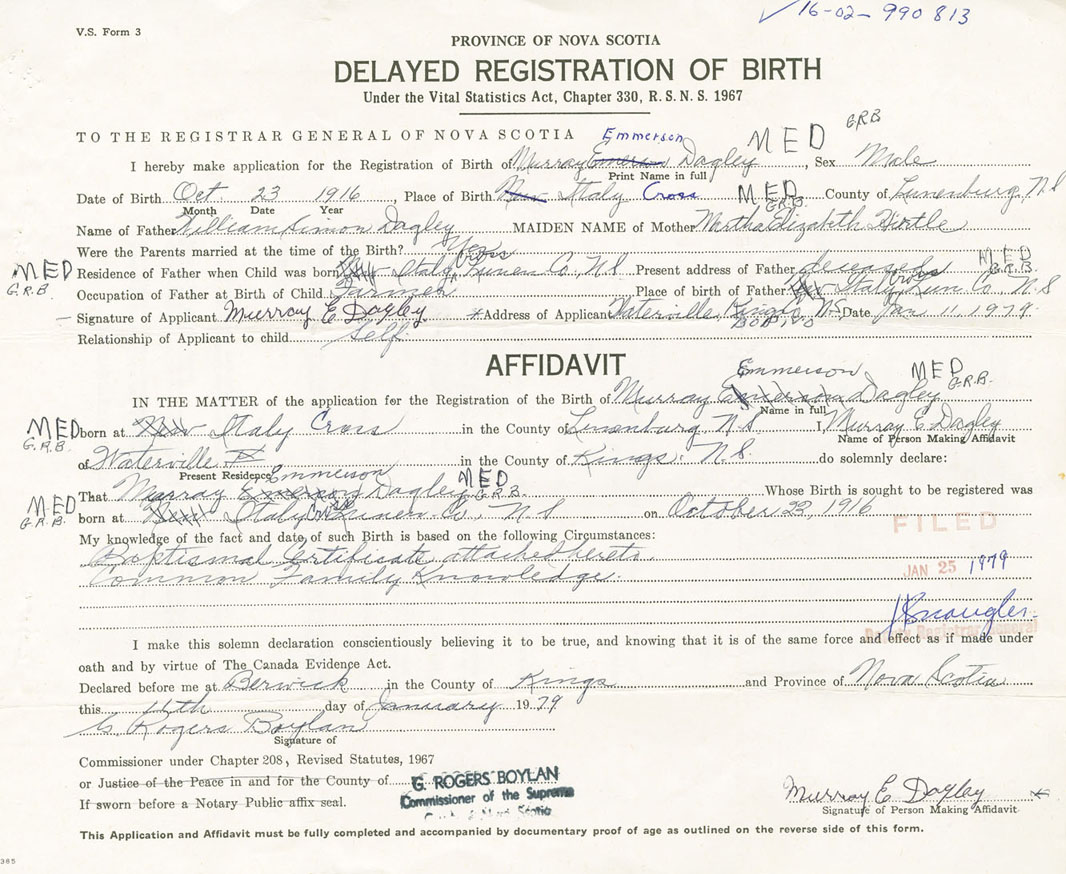 16-02-990 813
V.S. Form 3
PROVINCE OF NOVA SCOTIA
DELAYED REGISTRATION OF BIRTH
Under the Vital Statistics Act, Chapter 330, R.S.N.S. 1967
TO THE REGISTRAR GENERAL OF NOVA SCOTIA Emmerson MED GRB
I hereby make application for the Registration of Birth of Murray Emerson Dagley, Sex Male
Print Name in full
Date of Birth Oct. 23 1916, Place of Birth New Italy Cross MED G.R.B. County of Lunenburg, N S
Month Date Year
Name of Father William Simon Dagley MAIDEN NAME of Mother Martha Elizabeth Hirtle
Were the Parents married at the time of the Birth? Yes
MED Residence of Father when Child was born New Italy Cross Lunen Co. N S Present address of Father deceased MED
G.R.B. Occupation of Father at Birth of Child Farmer Place of birth of Father New Italy Cross Lun Co. N. S G.R.B.
Signature of Applicant Murray E Dagley *Address of Applicant Waterville, Kings Co, N S Date Jan 11, 1979.
Relationship of Applicant to child Self
AFFIDAVIT
Emmerson MED G.R.B.
IN THE MATTER of the application for the Registration of the Birth of Murray Emerson Dagley
Name in full
MED G.R.B. born at New Italy Cross in the County of Lunenburg N.S. I, Murray E Dagley
Name of Person Making Affidavit
of Waterville in the County of Kings. N.S. do solemnly declare:
Present Residence Emmerson MED
That Murray Emerson Dagley G.R.B. Whose Birth is sought to be registered was
MED G.R.B. born at New Italy Cross Lunen Co, N S on October 22, 1916
My knowledge of the fact and date of such Birth is based on the following Circumstances: FILED
Baptismal Certificate attached hereto
Common Family Knowledge. JAN 25 1979
I make this solemn declaration conscientiously believing it to be true, and knowing that it is of the same force and effect as if made under
oath and by virtue of The Canada Evidence Act.
Declared before me at Berwick in the County of Kings and Province of Nova Scotia
this 11th day of January 1979
G Rogers Boylan
Signature of
Commissioner under Chapter 208, Revised Statutes, 1967
or Justice of the Peace in and for the County of
If sworn before a Notary Public affix seal.
G. ROGERS BOYLAN
Commissioner of the Supreme
Murray E Dagley
Signature of Person Making Affidavit
This Application and Affidavit must be fully completed and accompanied by documentary proof of age as outlined on the reverse side of this form.
385